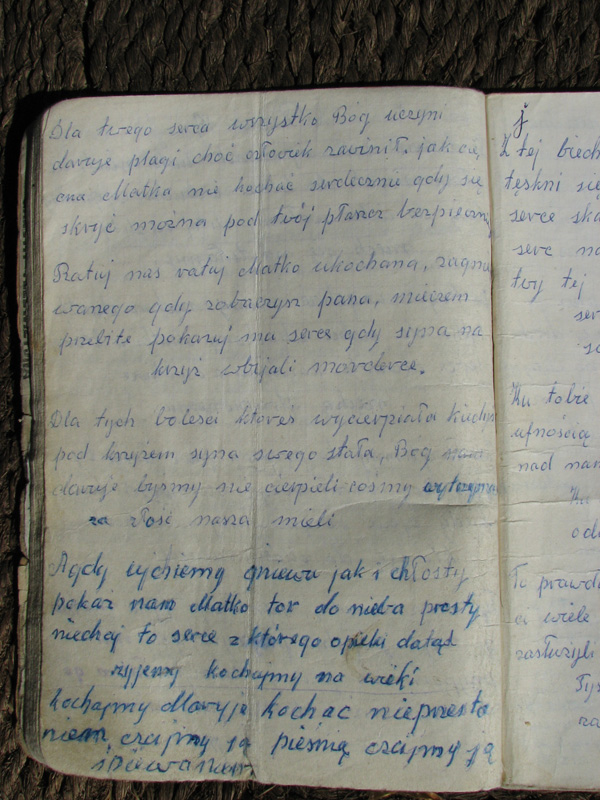 Dla twego serca wszystko Bóg uczyni
daruje plagi choć człowiek zawinił. jak cię
cna Matka nie kochać serdecznie gdy się
skryć można pod twój płaszcz bezpieczny
Ratuj nas ratuj Matko ukochana, zagnie
wanego gdy zobaczysz pana, mieczem
przebite pokazuj mu serce gdy syna na
krzyż wbijali mordercę.
Dla tych bolesci ktores wycierpiała kiedyś
pod krzyżem syna swego stała, Bóg nam
daruje byśmy nie cierpieli cośmy
za złość nasza mieli
Agdy ujdziemy gniewu jak i chłosty
pokaż nam Matko tor do nieba prosty
niechaj to serce z którego opieki dotąd
żyjemy kochajmy na wieki
kochajmy Maryję kochac nieprzesta
niem czcijmy ją pieśnią czcijmy ją
śpiewaniem
j
Z tej biedn
tęskni się
serce
serc na
twj tej
ser
Ku tobie
ufnością
nad nam
Ku
To prawda
a wiele
zasłużyli